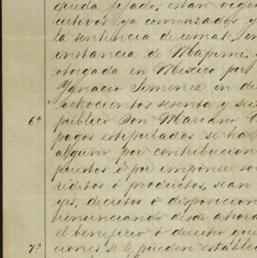 queda fijado, están vigen
cutivos ya comenzados y
la sentencia de remate, en
instancia de Mapimi, y
otorgada en Mexico por
Ygnacio Jimenez en di
ochocientos sesenta y sie
6ª público Don Mariano
pagos estipulados se ha
alguno por contribucion
puestos ó por imponer so
réditos ó productos, sean
yes, decretos ó disposicion
renunciando desde ahora
el beneficio ó derecho que
7ª ciones se le pueden establec